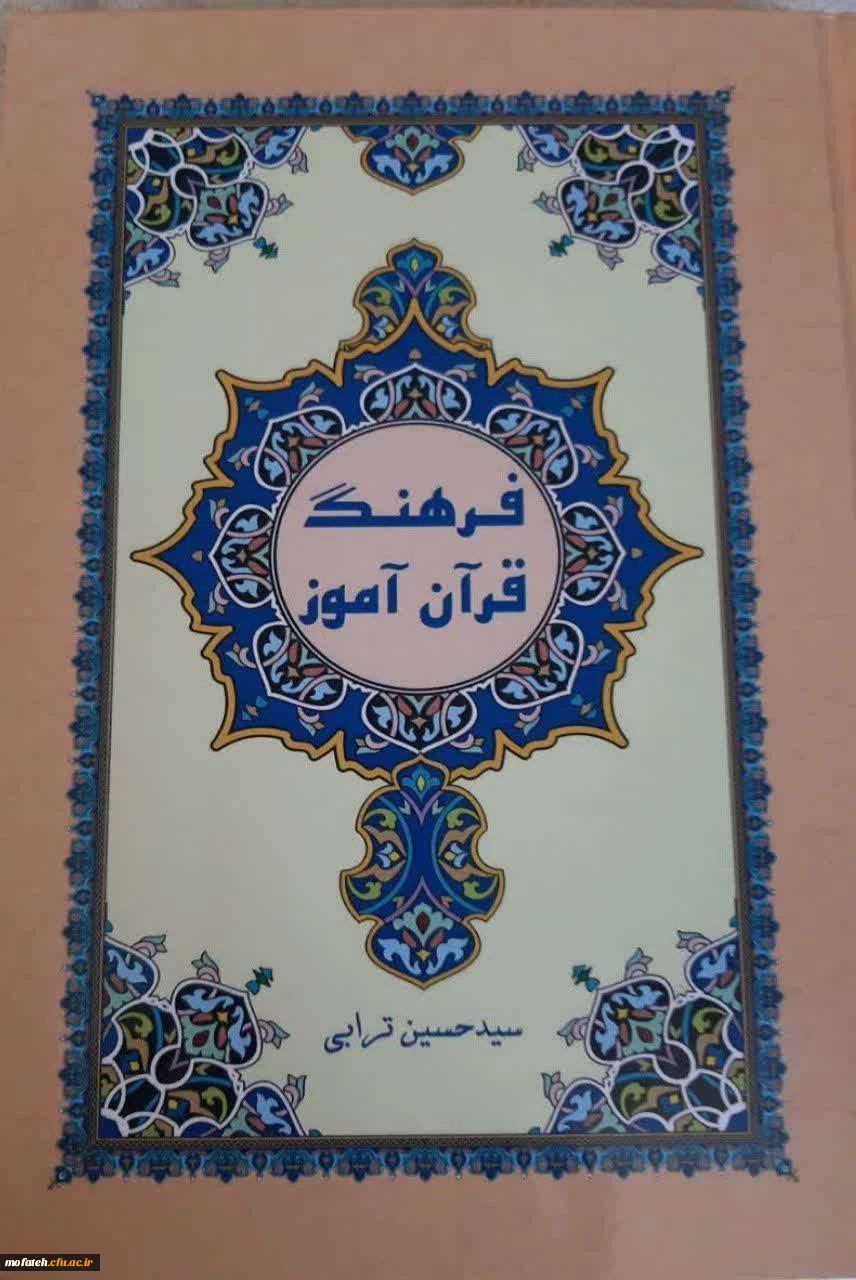 فرهنگ
قرآن آموز
سیدحسین ترابی
mofateh.cfu.ac.ir